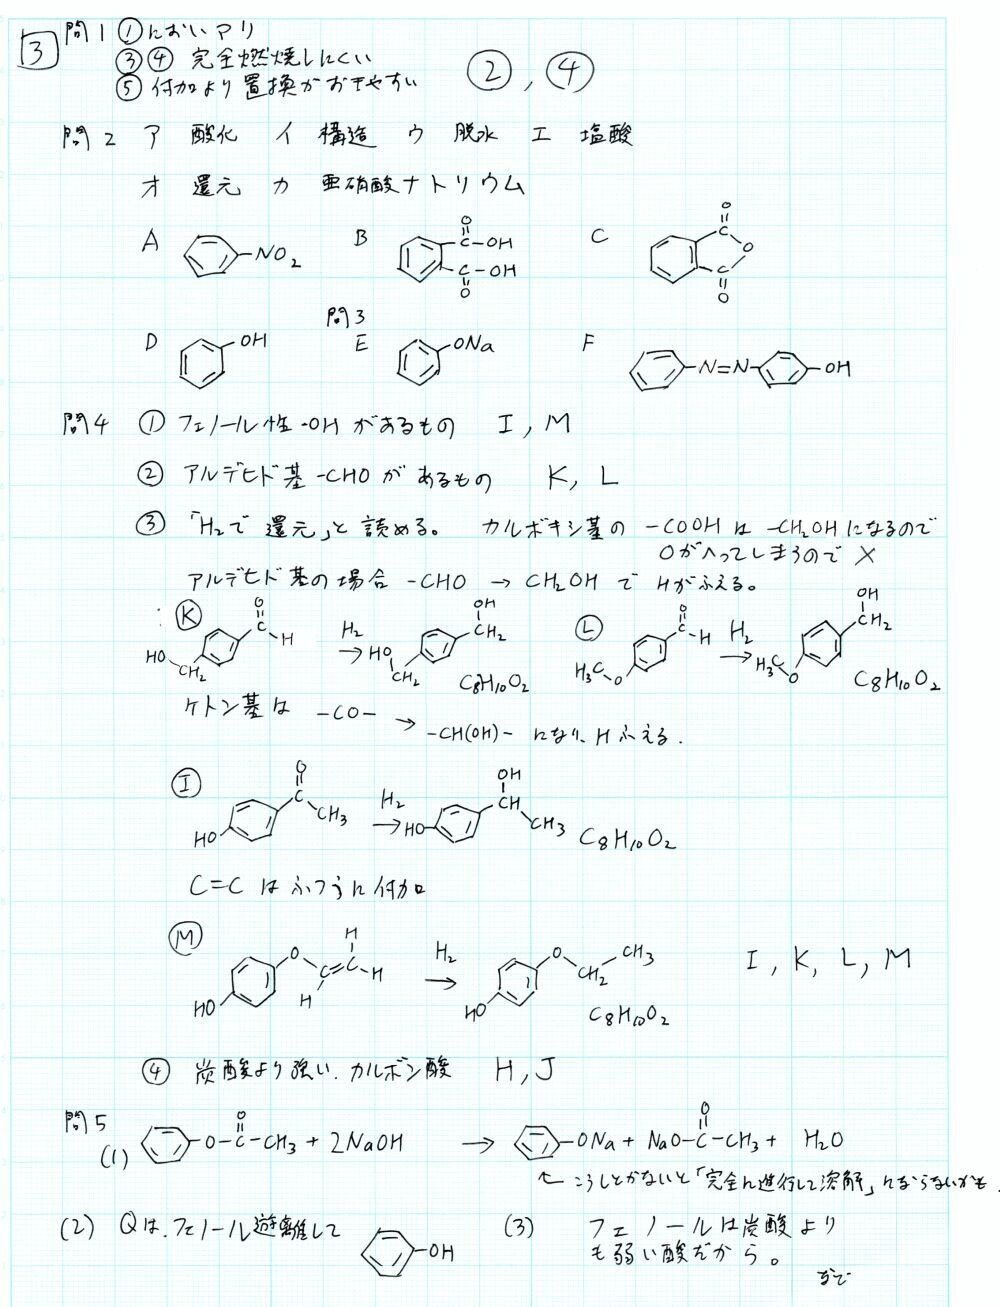 3 問1 ①においアリ
③④ 完全燃焼しにくい
⑤ 付加より置換がおきやすい ②, ④
問2 ア 酸化 イ 構造 ウ 脱水 エ 塩酸
オ 還元 カ 亜硝酸ナトリウム
A NO2 B O C OH C OH O C O C O C O
問3
D OH E ONa F N=N OH
問4 ① フェノール性-OHがあるもの I, M
② アルデヒド基 -CHOがあるもの K, L
③ 「H2で還元」と読める。 カルボキシ基の -COOHは -CH2OHになるので
Oがへってしまうので ×
アルデヒド基の場合 -CHO → CH2OHで Hがふえる。
K O C H HO CH2 H2 → OH CH2 HO CH2 C8H10O2 L O C H H3C O H2 → OH CH2 H3C O C8H10O2
ケトン基は -CO- → -CH(OH)- になり、Hふえる.
I O C CH3 HO H2 → OH CH CH3 HO C8H10O2
C=Cはふつうに付加
M O C=C H H H HO H2 → O CH2 CH3 HO C8H10O2 I, K, L, M
④ 炭酸より強い、カルボン酸 H, J
問5
(1) O-C-CH3 O + 2NaOH → ONa + NaO-C-CH3 O + H2O
← こうしとかないと「完全に進行して溶解」にならないかも.
(2) Qは、フェノール遊離して OH (3) フェノールは炭酸より
も弱い酸だから。